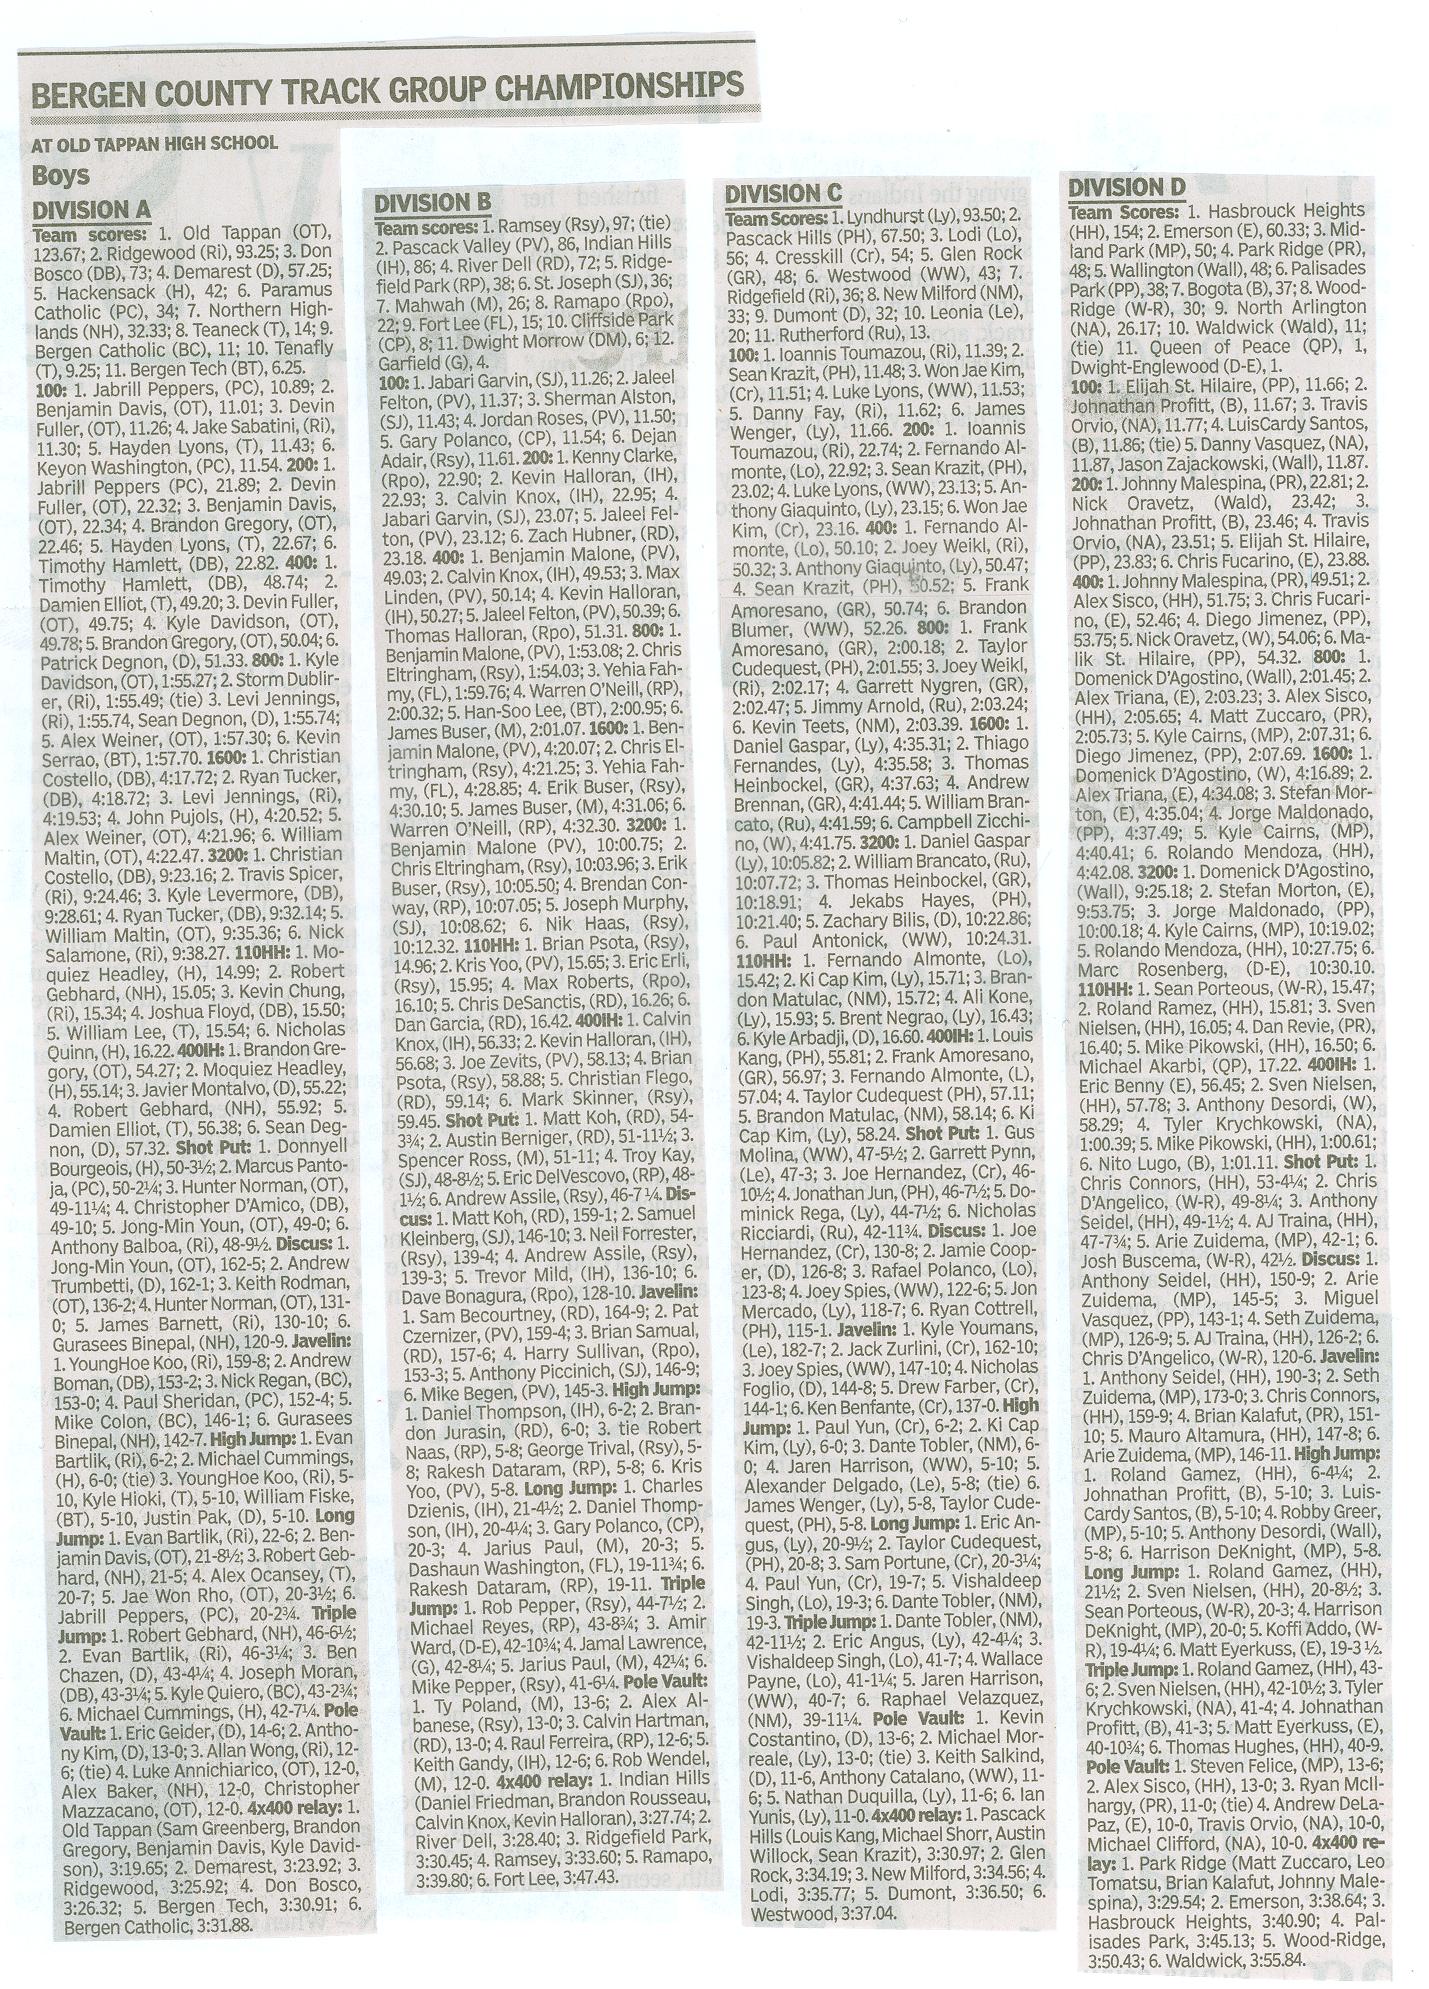 BERGEN COUNTY TRACK GROUP CHAMPIONSHIPS
AT OLD TAPPAN HIGH SCHOOL
Boys
DIVISION A
Team scores: 1. Old Tappan (OT),
123.67; 2. Ridgewood (Ri), 93.25; 3. Don
Bosco (DB), 73; 4. Demarest (D), 57.25;
5. Hackensack (H), 42; 6. Paramus
Catholic (PC), 34; 7. Northern High-
lands (NH), 32.33; 8. Teaneck (T), 14; 9.
Bergen Catholic (BC), 11; 10. Tenafly
(T), 9.25; 11. Bergen Tech (BT), 6.25.
100: 1. Jabrill Peppers, (PC), 10.89; 2.
Benjamin Davis, (OT), 11.01; 3. Devin
Fuller, (OT), 11.26; 4. Jake Sabatini, (Ri),
11.30; 5. Hayden Lyons, (T), 11.43; 6.
Keyon Washington, (PC), 11.54. 200: 1.
Jabrill Peppers (PC), 21.89; 2. Devin
Fuller, (OT), 22.32; 3. Benjamin Davis,
(OT), 22.34; 4. Brandon Gregory, (OT),
22.46; 5. Hayden Lyons, (T), 22.67; 6.
Timothy Hamlett, (DB), 22.82. 400: 1.
Timothy Hamlett, (DB), 48.74; 2.
Damien Elliot, (T), 49.20; 3. Devin Fuller,
(OT), 49.75; 4. Kyle Davidson, (OT),
49.78; 5. Brandon Gregory, (OT), 50.04; 6.
Patrick Degnon, (D), 51.33. 800: 1. Kyle
Davidson, (OT), 1:55.27; 2. Storm Dublir-
er, (Ri), 1:55.49; (tie) 3. Levi Jennings,
(Ri), 1:55.74, Sean Degnon, (D), 1:55.74;
5. Alex Weiner, (OT), 1:57.30; 6. Kevin
Serrao, (BT), 1:57.70. 1600: 1. Christian
Costello, (DB), 4:17.72; 2. Ryan Tucker,
(DB), 4:18.72; 3. Levi Jennings, (Ri),
4:19.53; 4. John Pujols, (H), 4:20.52; 5.
Alex Weiner, (OT), 4:21.96; 6. William
Maltin, (OT), 4:22.47. 3200: 1. Christian
Costello, (DB), 9:23.16; 2. Travis Spicer,
(Ri), 9:24.46; 3. Kyle Levermore, (DB),
9:28.61; 4. Ryan Tucker, (DB), 9:32.14; 5.
William Maltin, (OT), 9:35.36; 6. Nick
Salamone, (Ri), 9:38.27. 110HH: 1. Mo-
quiez Headley, (H), 14.99; 2. Robert
Gebhard, (NH), 15.05; 3. Kevin Chung,
(Ri), 15.34; 4. Joshua Floyd, (DB), 15.50;
5. William Lee, (T), 15.54; 6. Nicholas
Quinn, (H), 16.22. 400IH: 1. Brandon Gre-
gory, (OT), 54.27; 2. Moquiez Headley,
(H), 55.14; 3. Javier Montalvo, (D), 55.22;
4. Robert Gebhard, (NH), 55.92; 5.
Damien Elliot, (T), 56.38; 6. Sean Deg-
non, (D), 57.32. Shot Put: 1. Donnyell
Bourgeois, (H), 50-3½; 2. Marcus Panto-
ja, (PC), 50-2¼; 3. Hunter Norman, (OT),
49-11¼; 4. Christopher D'Amico, (DB),
49-10; 5. Jong-Min Youn, (OT), 49-0; 6.
Anthony Balboa, (Ri), 48-9½. Discus: 1.
Jong-Min Youn, (OT), 162-5; 2. Andrew
Trumbetti, (D), 162-1; 3. Keith Rodman,
(OT), 136-2; 4. Hunter Norman, (OT), 131-
0; 5. James Barnett, (Ri), 130-10; 6.
Gurasees Binepal, (NH), 120-9. Javelin:
1. YoungHoe Koo, (Ri), 159-8; 2. Andrew
Boman, (DB), 153-2; 3. Nick Regan, (BC),
153-0; 4. Paul Sheridan, (PC), 152-4; 5.
Mike Colon, (BC), 146-1; 6. Gurasees
Binepal, (NH), 142-7. High Jump: 1. Evan
Bartlik, (Ri), 6-2; 2. Michael Cummings,
(H), 6-0; (tie) 3. YoungHoe Koo, (Ri), 5-
10, Kyle Hioki, (T), 5-10, William Fiske,
(BT), 5-10, Justin Pak, (D), 5-10. Long
Jump: 1. Evan Bartlik, (Ri), 22-6; 2. Ben-
jamin Davis, (OT), 21-8½; 3. Robert Geb-
hard, (NH), 21-5; 4. Alex Ocansey, (T),
20-7; 5. Jae Won Rho, (OT), 20-3½; 6.
Jabrill Peppers, (PC), 20-2¾. Triple
Jump: 1. Robert Gebhard, (NH), 46-6½;
2. Evan Bartlik, (Ri), 46-3¼; 3. Ben
Chazen, (D), 43-4¼; 4. Joseph Moran,
(DB), 43-3¼; 5. Kyle Quiero, (BC), 43-2¾;
6. Michael Cummings, (H), 42-7¼. Pole
Vault: 1. Eric Geider, (D), 14-6; 2. Antho-
ny Kim, (D), 13-0; 3. Allan Wong, (Ri), 12-
6; (tie) 4. Luke Annichiarico, (OT), 12-0,
Alex Baker, (NH), 12-0, Christopher
Mazzacano, (OT), 12-0. 4x400 relay: 1.
Old Tappan (Sam Greenberg, Brandon
Gregory, Benjamin Davis, Kyle David-
son), 3:19.65; 2. Demarest, 3:23.92; 3.
Ridgewood, 3:25.92; 4. Don Bosco,
3:26.32; 5. Bergen Tech, 3:30.91; 6.
Bergen Catholic, 3:31.88.
DIVISION B
Team scores: 1. Ramsey (Rsy), 97; (tie)
2. Pascack Valley (PV), 86, Indian Hills
(IH), 86; 4. River Dell (RD), 72; 5. Ridge-
field Park (RP), 38; 6. St. Joseph (SJ), 36;
7. Mahwah (M), 26; 8. Ramapo (Rpo),
22; 9. Fort Lee (FL), 15; 10. Cliffside Park
(CP), 8; 11. Dwight Morrow (DM), 6; 12.
Garfield (G), 4.
100: 1. Jabari Garvin, (SJ), 11.26; 2. Jaleel
Felton, (PV), 11.37; 3. Sherman Alston,
(SJ), 11.43; 4. Jordan Roses, (PV), 11.50;
5. Gary Polanco, (CP), 11.54; 6. Dejan
Adair, (Rsy), 11.61. 200: 1. Kenny Clarke,
(Rpo), 22.90; 2. Kevin Halloran, (IH),
22.93; 3. Calvin Knox, (IH), 22.95; 4.
Jabari Garvin, (SJ), 23.07; 5. Jaleel Fel-
ton, (PV), 23.12; 6. Zach Hubner, (RD),
23.18. 400: 1. Benjamin Malone, (PV),
49.03; 2. Calvin Knox, (IH), 49.53; 3. Max
Linden, (PV), 50.14; 4. Kevin Halloran,
(IH), 50.27; 5. Jaleel Felton, (PV), 50.39; 6.
Thomas Halloran, (Rpo), 51.31. 800: 1.
Benjamin Malone, (PV), 1:53.08; 2. Chris
Eltringham, (Rsy), 1:54.03; 3. Yehia Fah-
my, (FL), 1:59.76; 4. Warren O'Neill, (RP),
2:00.32; 5. Han-Soo Lee, (BT), 2:00.95; 6.
James Buser, (M), 2:01.07. 1600: 1. Ben-
jamin Malone, (PV), 4:20.07; 2. Chris El-
tringham, (Rsy), 4:21.25; 3. Yehia Fah-
my, (FL), 4:28.85; 4. Erik Buser, (Rsy),
4:30.10; 5. James Buser, (M), 4:31.06; 6.
Warren O'Neill, (RP), 4:32.30. 3200: 1.
Benjamin Malone (PV), 10:00.75; 2.
Chris Eltringham, (Rsy), 10:03.96; 3. Erik
Buser, (Rsy), 10:05.50; 4. Brendan Con-
way, (RP), 10:07.05; 5. Joseph Murphy,
(SJ), 10:08.62; 6. Nik Haas, (Rsy),
10:12.32. 110HH: 1. Brian Psota, (Rsy),
14.96; 2. Kris Yoo, (PV), 15.65; 3. Eric Erli,
(Rsy), 15.95; 4. Max Roberts, (Rpo),
16.10; 5. Chris DeSanctis, (RD), 16.26; 6.
Dan Garcia, (RD), 16.42. 400IH: 1. Calvin
Knox, (IH), 56.33; 2. Kevin Halloran, (IH),
56.68; 3. Joe Zevits, (PV), 58.13; 4. Brian
Psota, (Rsy), 58.88; 5. Christian Flego,
(RD), 59.14; 6. Mark Skinner, (Rsy),
59.45. Shot Put: 1. Matt Koh, (RD), 54-
3¾; 2. Austin Berniger, (RD), 51-11½; 3.
Spencer Ross, (M), 51-11; 4. Troy Kay,
(SJ), 48-8½; 5. Eric DelVescovo, (RP), 48-
1½; 6. Andrew Assile, (Rsy), 46-7 ¼. Dis-
cus: 1. Matt Koh, (RD), 159-1; 2. Samuel
Kleinberg, (SJ), 146-10; 3. Neil Forrester,
(Rsy), 139-4; 4. Andrew Assile, (Rsy),
139-3; 5. Trevor Mild, (IH), 136-10; 6.
Dave Bonagura, (Rpo), 128-10. Javelin:
1. Sam Becourtney, (RD), 164-9; 2. Pat
Czernizer, (PV), 159-4; 3. Brian Samual,
(RD), 157-6; 4. Harry Sullivan, (Rpo),
153-3; 5. Anthony Piccinich, (SJ), 146-9;
6. Mike Begen, (PV), 145-3. High Jump:
1. Daniel Thompson, (IH), 6-2; 2. Bran-
don Jurasin, (RD), 6-0; 3. tie Robert
Naas, (RP), 5-8; George Trival, (Rsy), 5-
8; Rakesh Dataram, (RP), 5-8; 6. Kris
Yoo, (PV), 5-8. Long Jump: 1. Charles
Dzienis, (IH), 21-4½; 2. Daniel Thomp-
son, (IH), 20-4¼; 3. Gary Polanco, (CP),
20-3; 4. Jarius Paul, (M), 20-3; 5.
Dashaun Washington, (FL), 19-11¾; 6.
Rakesh Dataram, (RP), 19-11. Triple
Jump: 1. Rob Pepper, (Rsy), 44-7½; 2.
Michael Reyes, (RP), 43-8¾; 3. Amir
Ward, (D-E), 42-10¾; 4. Jamal Lawrence,
(G), 42-8¼; 5. Jarius Paul, (M), 42¼; 6.
Mike Pepper, (Rsy), 41-6¼. Pole Vault:
1. Ty Poland, (M), 13-6; 2. Alex Al-
banese, (Rsy), 13-0; 3. Calvin Hartman,
(RD), 13-0; 4. Raul Ferreira, (RP), 12-6; 5.
Keith Gandy, (IH), 12-6; 6. Rob Wendel,
(M), 12-0. 4x400 relay: 1. Indian Hills
(Daniel Friedman, Brandon Rousseau,
Calvin Knox, Kevin Halloran), 3:27.74; 2.
River Dell, 3:28.40; 3. Ridgefield Park,
3:30.45; 4. Ramsey, 3:33.60; 5. Ramapo,
3:39.80; 6. Fort Lee, 3:47.43.
DIVISION C
Team Scores: 1. Lyndhurst (Ly), 93.50; 2.
Pascack Hills (PH), 67.50; 3. Lodi (Lo),
56; 4. Cresskill (Cr), 54; 5. Glen Rock
(GR), 48; 6. Westwood (WW), 43; 7.
Ridgefield (Ri), 36; 8. New Milford (NM),
33; 9. Dumont (D), 32; 10. Leonia (Le),
20; 11. Rutherford (Ru), 13.
100: 1. Ioannis Toumazou, (Ri), 11.39; 2.
Sean Krazit, (PH), 11.48; 3. Won Jae Kim,
(Cr), 11.51; 4. Luke Lyons, (WW), 11.53;
5. Danny Fay, (Ri), 11.62; 6. James
Wenger, (Ly), 11.66. 200: 1. Ioannis
Toumazou, (Ri), 22.74; 2. Fernando Al-
monte, (Lo), 22.92; 3. Sean Krazit, (PH),
23.02; 4. Luke Lyons, (WW), 23.13; 5. An-
thony Giaquinto, (Ly), 23.15; 6. Won Jae
Kim, (Cr), 23.16. 400: 1. Fernando Al-
monte, (Lo), 50.10; 2. Joey Weikl, (Ri),
50.32; 3. Anthony Giaquinto, (Ly), 50.47;
4. Sean Krazit, (PH), 50.52; 5. Frank
Amoresano, (GR), 50.74; 6. Brandon
Blumer, (WW), 52.26. 800: 1. Frank
Amoresano, (GR), 2:00.18; 2. Taylor
Cudequest, (PH), 2:01.55; 3. Joey Weikl,
(Ri), 2:02.17; 4. Garrett Nygren, (GR),
2:02.47; 5. Jimmy Arnold, (Ru), 2:03.24;
6. Kevin Teets, (NM), 2:03.39. 1600: 1.
Daniel Gaspar, (Ly), 4:35.31; 2. Thiago
Fernandes, (Ly), 4:35.58; 3. Thomas
Heinbockel, (GR), 4:37.63; 4. Andrew
Brennan, (GR), 4:41.44; 5. William Bran-
cato, (Ru), 4:41.59; 6. Campbell Zicchi-
no, (W), 4:41.75. 3200: 1. Daniel Gaspar
(Ly), 10:05.82; 2. William Brancato, (Ru),
10:07.72; 3. Thomas Heinbockel, (GR),
10:18.91; 4. Jekabs Hayes, (PH),
10:21.40; 5. Zachary Bilis, (D), 10:22.86;
6. Paul Antonick, (WW), 10:24.31.
110HH: 1. Fernando Almonte, (Lo),
15.42; 2. Ki Cap Kim, (Ly), 15.71; 3. Bran-
don Matulac, (NM), 15.72; 4. Ali Kone,
(Ly), 15.93; 5. Brent Negrao, (Ly), 16.43;
6. Kyle Arbadji, (D), 16.60. 400IH: 1. Louis
Kang, (PH), 55.81; 2. Frank Amoresano,
(GR), 56.97; 3. Fernando Almonte, (L),
57.04; 4. Taylor Cudequest (PH), 57.11;
5. Brandon Matulac, (NM), 58.14; 6. Ki
Cap Kim, (Ly), 58.24. Shot Put: 1. Gus
Molina, (WW), 47-5½; 2. Garrett Pynn,
(Le), 47-3; 3. Joe Hernandez, (Cr), 46-
10½; 4. Jonathan Jun, (PH), 46-7½; 5. Do-
minick Rega, (Ly), 44-7½; 6. Nicholas
Ricciardi, (Ru), 42-11¾. Discus: 1. Joe
Hernandez, (Cr), 130-8; 2. Jamie Coop-
er, (D), 126-8; 3. Rafael Polanco, (Lo),
123-8; 4. Joey Spies, (WW), 122-6; 5. Jon
Mercado, (Ly), 118-7; 6. Ryan Cottrell,
(PH), 115-1. Javelin: 1. Kyle Youmans,
(Le), 182-7; 2. Jack Zurlini, (Cr), 162-10;
3. Joey Spies, (WW), 147-10; 4. Nicholas
Foglio, (D), 144-8; 5. Drew Farber, (Cr),
144-1; 6. Ken Benfante, (Cr), 137-0. High
Jump: 1. Paul Yun, (Cr), 6-2; 2. Ki Cap
Kim, (Ly), 6-0; 3. Dante Tobler, (NM), 6-
0; 4. Jaren Harrison, (WW), 5-10; 5.
Alexander Delgado, (Le), 5-8; (tie) 6.
James Wenger, (Ly), 5-8, Taylor Cude-
quest, (PH), 5-8. Long Jump: 1. Eric An-
gus, (Ly), 20-9½; 2. Taylor Cudequest,
(PH), 20-8; 3. Sam Portune, (Cr), 20-3¼;
4. Paul Yun, (Cr), 19-7; 5. Vishaldeep
Singh, (Lo), 19-3; 6. Dante Tobler, (NM),
19-3. Triple Jump: 1. Dante Tobler, (NM),
42-11½; 2. Eric Angus, (Ly), 42-4¼; 3.
Vishaldeep Singh, (Lo), 41-7; 4. Wallace
Payne, (Lo), 41-1¼; 5. Jaren Harrison,
(WW), 40-7; 6. Raphael Velazquez,
(NM), 39-11¼. Pole Vault: 1. Kevin
Costantino, (D), 13-6; 2. Michael Mor-
reale, (Ly), 13-0; (tie) 3. Keith Salkind,
(D), 11-6, Anthony Catalano, (WW), 11-
6; 5. Nathan Duquilla, (Ly), 11-6; 6. Ian
Yunis, (Ly), 11-0. 4x400 relay: 1. Pascack
Hills (Louis Kang, Michael Shorr, Austin
Willock, Sean Krazit), 3:30.97; 2. Glen
Rock, 3:34.19; 3. New Milford, 3:34.56; 4.
Lodi, 3:35.77; 5. Dumont, 3:36.50; 6.
Westwood, 3:37.04.
DIVISION D
Team Scores: 1. Hasbrouck Heights
(HH), 154; 2. Emerson (E), 60.33; 3. Mid-
land Park (MP), 50; 4. Park Ridge (PR),
48; 5. Wallington (Wall), 48; 6. Palisades
Park (PP), 38; 7. Bogota (B), 37; 8. Wood-
Ridge (W-R), 30; 9. North Arlington
(NA), 26.17; 10. Waldwick (Wald), 11;
(tie) 11. Queen of Peace (QP), 1,
Dwight-Englewood (D-E), 1.
100: 1. Elijah St. Hilaire, (PP), 11.66; 2.
Johnathan Profitt, (B), 11.67; 3. Travis
Orvio, (NA), 11.77; 4. LuisCardy Santos,
(B), 11.86; (tie) 5. Danny Vasquez, (NA),
11.87, Jason Zajackowski, (Wall), 11.87.
200: 1. Johnny Malespina, (PR), 22.81; 2.
Nick Oravetz, (Wald), 23.42; 3.
Johnathan Profitt, (B), 23.46; 4. Travis
Orvio, (NA), 23.51; 5. Elijah St. Hilaire,
(PP), 23.83; 6. Chris Fucarino, (E), 23.88.
400: 1. Johnny Malespina, (PR), 49.51; 2.
Alex Sisco, (HH), 51.75; 3. Chris Fucari-
no, (E), 52.46; 4. Diego Jimenez, (PP),
53.75; 5. Nick Oravetz, (W), 54.06; 6. Ma-
lik St. Hilaire, (PP), 54.32. 800: 1.
Domenick D'Agostino, (Wall), 2:01.45; 2.
Alex Triana, (E), 2:03.23; 3. Alex Sisco,
(HH), 2:05.65; 4. Matt Zuccaro, (PR),
2:05.73; 5. Kyle Cairns, (MP), 2:07.31; 6.
Diego Jimenez, (PP), 2:07.69. 1600: 1.
Domenick D'Agostino, (W), 4:16.89; 2.
Alex Triana, (E), 4:34.08; 3. Stefan Mor-
ton, (E), 4:35.04; 4. Jorge Maldonado,
(PP), 4:37.49; 5. Kyle Cairns, (MP),
4:40.41; 6. Rolando Mendoza, (HH),
4:42.08. 3200: 1. Domenick D'Agostino,
(Wall), 9:25.18; 2. Stefan Morton, (E),
9:53.75; 3. Jorge Maldonado, (PP),
10:00.18; 4. Kyle Cairns, (MP), 10:19.02;
5. Rolando Mendoza, (HH), 10:27.75; 6.
Marc Rosenberg, (D-E), 10:30.10.
110HH: 1. Sean Porteous, (W-R), 15.47;
2. Roland Ramez, (HH), 15.81; 3. Sven
Nielsen, (HH), 16.05; 4. Dan Revie, (PR),
16.40; 5. Mike Pikowski, (HH), 16.50; 6.
Michael Akarbi, (QP), 17.22. 400IH: 1.
Eric Benny (E), 56.45; 2. Sven Nielsen,
(HH), 57.78; 3. Anthony Desordi, (W),
58.29; 4. Tyler Krychkowski, (NA),
1:00.39; 5. Mike Pikowski, (HH), 1:00.61;
6. Nito Lugo, (B), 1:01.11. Shot Put: 1.
Chris Connors, (HH), 53-4¼; 2. Chris
D'Angelico, (W-R), 49-8¼; 3. Anthony
Seidel, (HH), 49-1½; 4. AJ Traina, (HH),
47-7¾; 5. Arie Zuidema, (MP), 42-1; 6.
Josh Buscema, (W-R), 42½. Discus: 1.
Anthony Seidel, (HH), 150-9; 2. Arie
Zuidema, (MP), 145-5; 3. Miguel
Vasquez, (PP), 143-1; 4. Seth Zuidema,
(MP), 126-9; 5. AJ Traina, (HH), 126-2; 6.
Chris D'Angelico, (W-R), 120-6. Javelin:
1. Anthony Seidel, (HH), 190-3; 2. Seth
Zuidema, (MP), 173-0; 3. Chris Connors,
(HH), 159-9; 4. Brian Kalafut, (PR), 151-
10; 5. Mauro Altamura, (HH), 147-8; 6.
Arie Zuidema, (MP), 146-11. High Jump:
1. Roland Gamez, (HH), 6-4¼; 2.
Johnathan Profitt, (B), 5-10; 3. Luis-
Cardy Santos, (B), 5-10; 4. Robby Greer,
(MP), 5-10; 5. Anthony Desordi, (Wall),
5-8; 6. Harrison DeKnight, (MP), 5-8.
Long Jump: 1. Roland Gamez, (HH),
21½; 2. Sven Nielsen, (HH), 20-8½; 3.
Sean Porteous, (W-R), 20-3; 4. Harrison
DeKnight, (MP), 20-0; 5. Koffi Addo, (W-
R), 19-4¼; 6. Matt Eyerkuss, (E), 19-3 ½.
Triple Jump: 1. Roland Gamez, (HH), 43-
6; 2. Sven Nielsen, (HH), 42-10½; 3. Tyler
Krychkowski, (NA), 41-4; 4. Johnathan
Profitt, (B), 41-3; 5. Matt Eyerkuss, (E),
40-10¾; 6. Thomas Hughes, (HH), 40-9.
Pole Vault: 1. Steven Felice, (MP), 13-6;
2. Alex Sisco, (HH), 13-0; 3. Ryan McIl-
hargy, (PR), 11-0; (tie) 4. Andrew DeLa-
Paz, (E), 10-0, Travis Orvio, (NA), 10-0,
Michael Clifford, (NA), 10-0. 4x400 re-
lay: 1. Park Ridge (Matt Zuccaro, Leo
Tomatsu, Brian Kalafut, Johnny Male-
spina), 3:29.54; 2. Emerson, 3:38.64; 3.
Hasbrouck Heights, 3:40.90; 4. Pal-
isades Park, 3:45.13; 5. Wood-Ridge,
3:50.43; 6. Waldwick, 3:55.84.